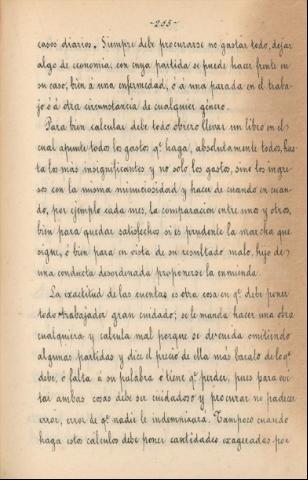 -255-
casos diarios. Siempre debe procurarse no gastar todo, dejar
algo de economia, con cuya partida se puede hacer frente en
su caso, bien á una enfermedad, ó á una parada en el traba-
jo ó á otra circunstancia de cualquier género.
Para bien calcular debe todo obrero llevar un libro en el
cual apunte todos los gastos q.e haga, absolutamente todos, has-
ta los mas insignificantes y no solo los gastos, sino los ingre-
sos con la misma minuciosidad y hacer de cuando en cuan-
do, por ejemplo cada mes, la comparación entre uno y otros,
bien para quedar satisfechos si es prudente la marcha que
sigue, ó bien para en vista de su resultado malo, hijo de
una conducta desordenada proponerse la enmienda.
La exactitud de las cuentas es otra cosa en q.e debe poner
todo trabajador gran cuidado; se le manda hacer una obra
cualquiera y calcula mal porque se descuida omitiendo
algunas partidas y dice el precio de ella mas barato de lo q.e
debe, ó falta á su palabra ó tiene q.e perder, pues para evi-
tar ambas cosas debe ser cuidadoso y procurar no padecer
error, error de q.e nadie le indemnizara. Tampoco cuando
haga estos cálculos debe poner cantidades exageradas por